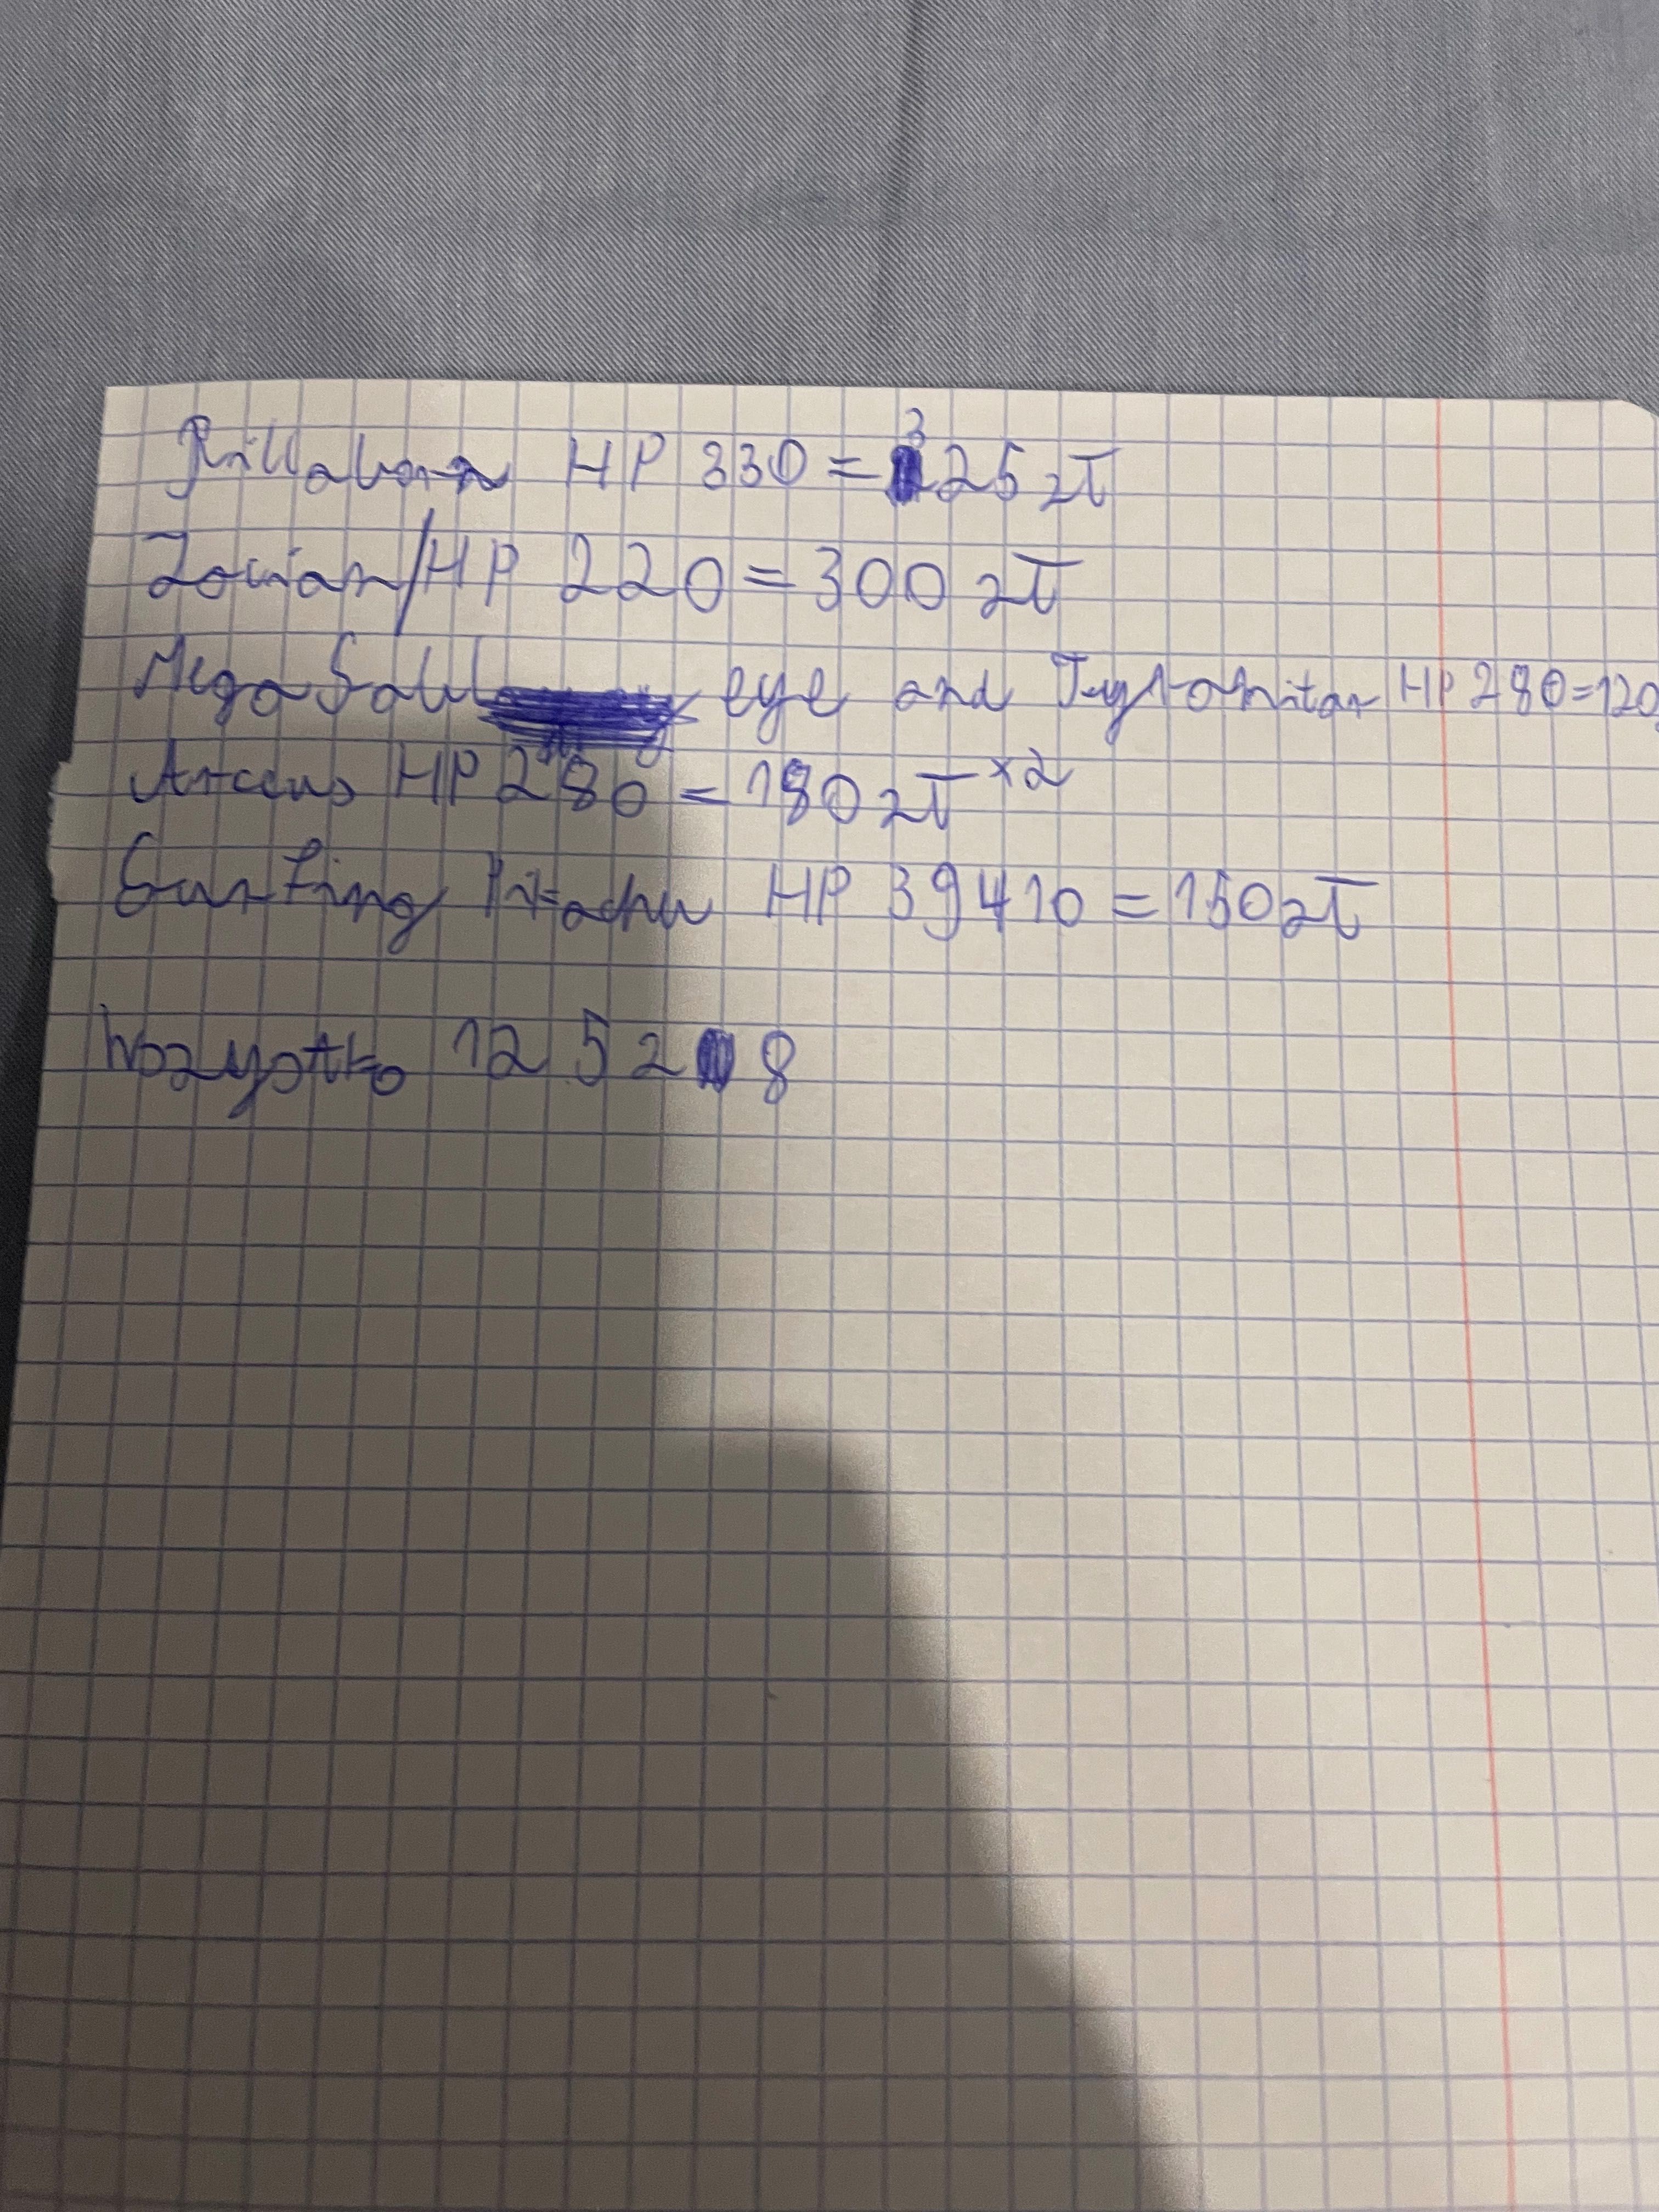 Rillaboom HP 330 = 325 zł
Zacian/HP 220 = 300 zł
Mega Sabl eye and Tyranitar HP 280=120
Arceus HP 280 = 180 zł x2
Surfing Pikachu HP 39410 = 150 zł
Wszystko 12528